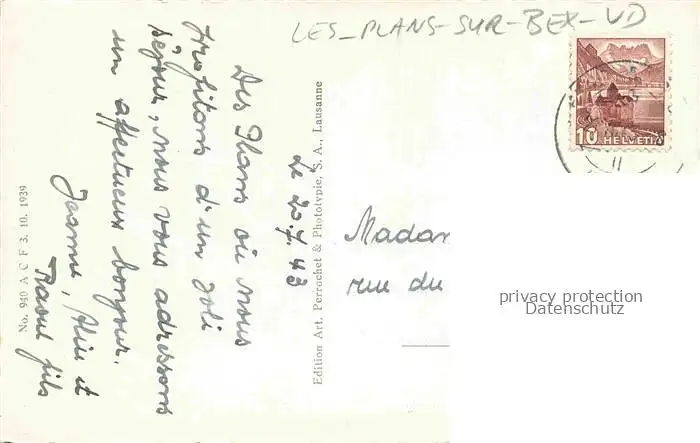 LES-PLANS-SUR-BEX-VD
Le 20.7.43
Des Plans où nous
profitons d'un joli
séjour, nous vous adressons
un affectueux bonjour.
Jeanne, et
Raoul fils
No. 940 A C F 3. 10. 1939
Edition Art. Perrochet & Phototypie, S. A., Lausanne
10 HELVETIA
11
Madam
rue du
privacy protection
Datenschutz